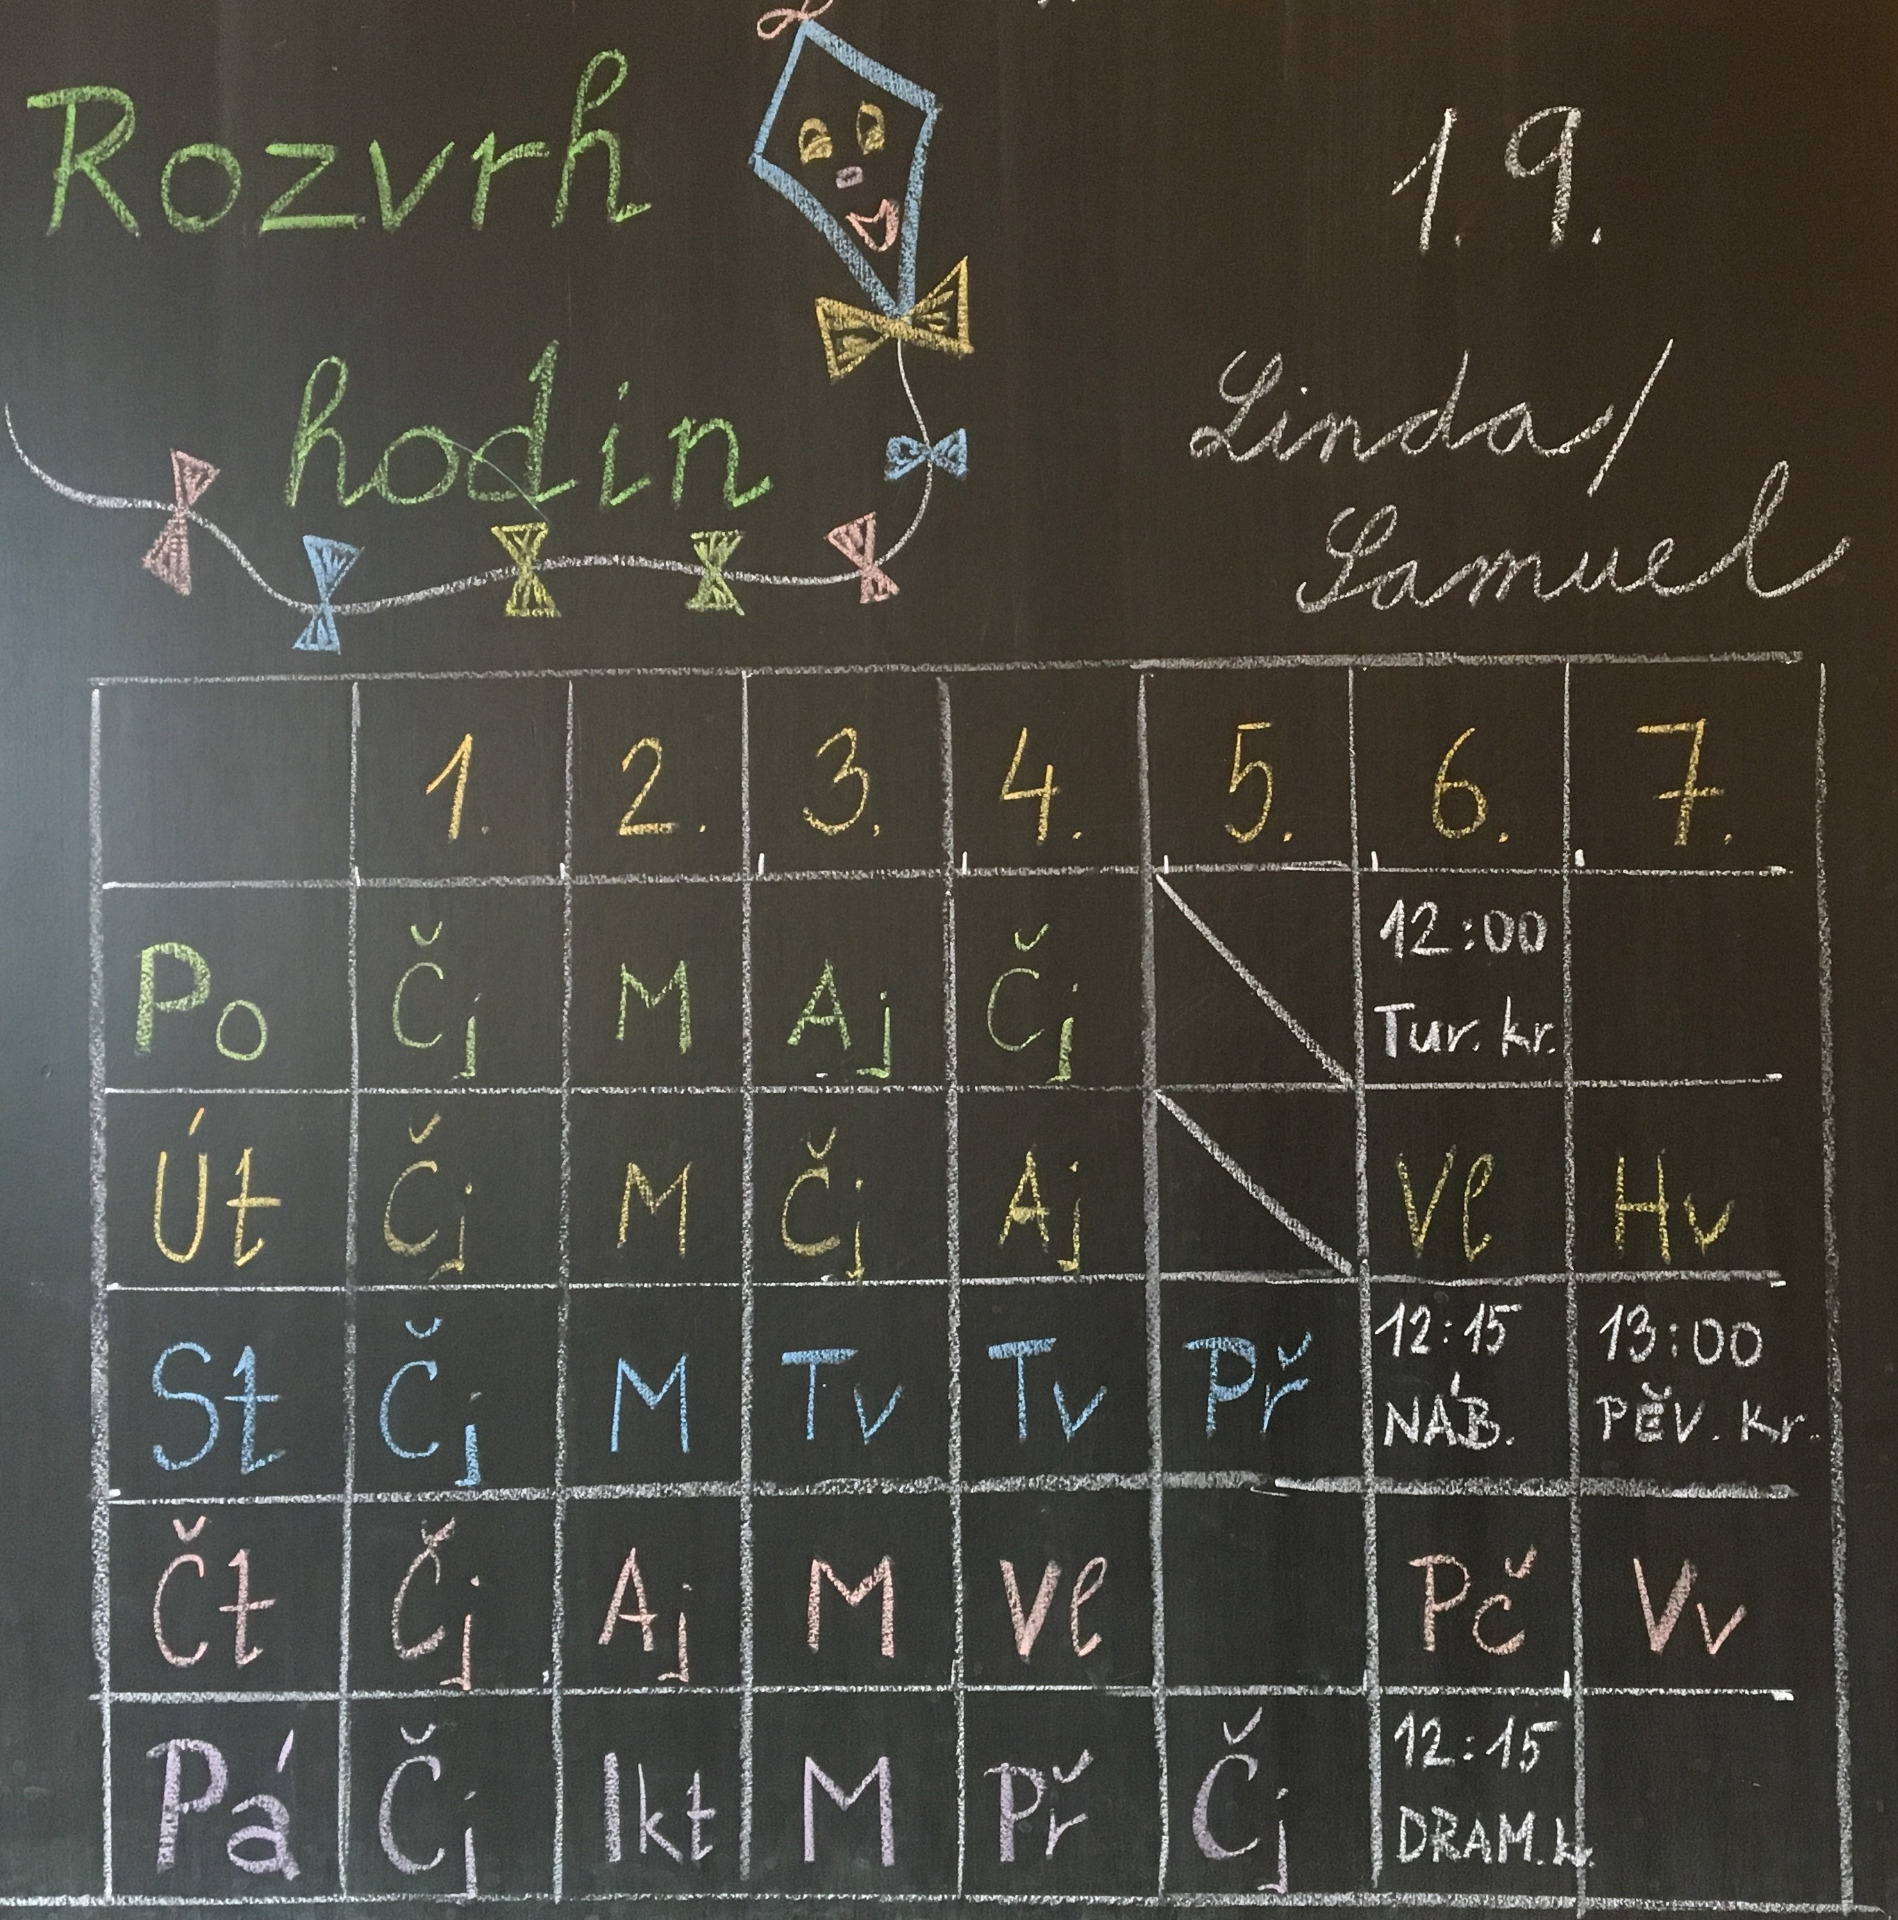 Rozvrh
hodin
1. 9.
Linda/
Samuel
1. 2. 3. 4. 5. 6. 7.
Po Čj M Aj Čj 12:00 Tur. kr.
Út Čj M Čj Aj Vl Hv
St Čj M Tv Tv Př 12:15 NÁB. 13:00 PĚV. kr.
Čt Čj Aj M Vl Pč Vv
Pá Čj Ikt M Př Čj 12:15 DRAM.k.